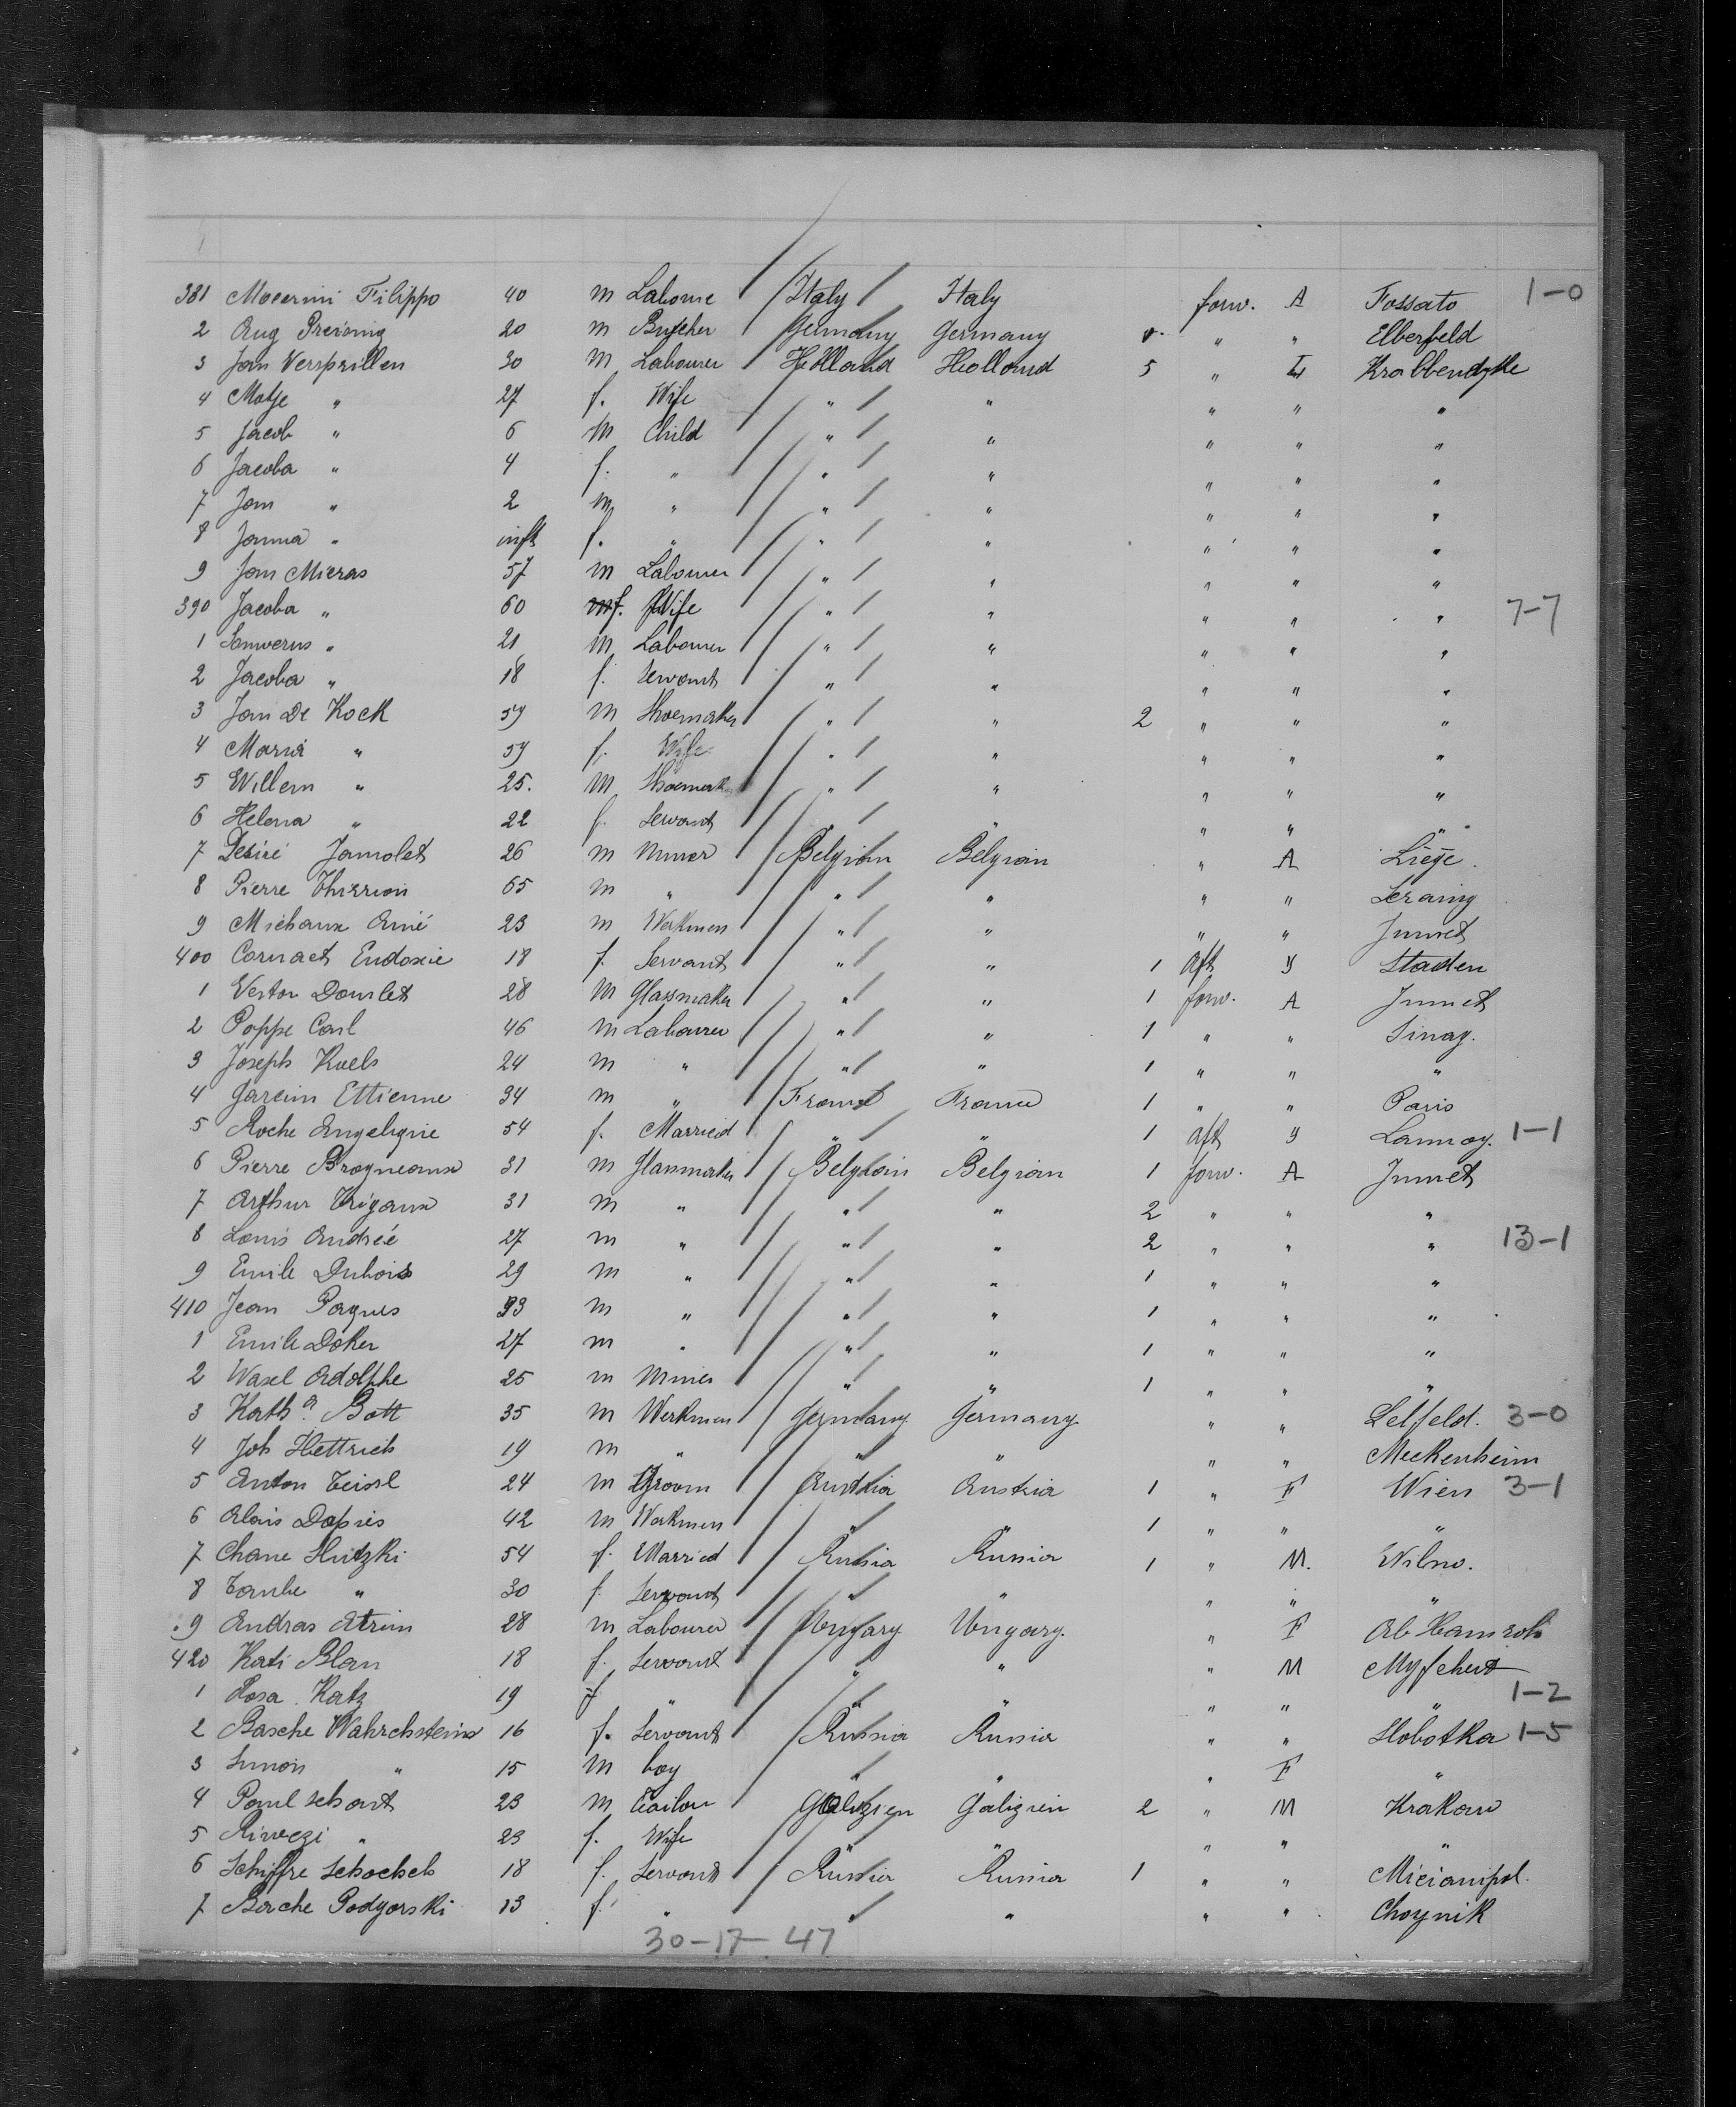 381 Mocerini Filippo 40 m Laboure Italy Italy forw. A Fossato 1-0
2 Aug Preisnig 20 m Butcher Germany Germany " " Elberfeld
3 Jan Versprillen 30 m Labourer Holland Holland 5 " Krabbendyke
4 Matje " 27 f. Wife " " " " "
5 Jacob " 6 m Child " " " " "
6 Jacoba " 4 f. " " " " " "
7 Jan " 2 m " " " " " "
8 Janna " inft f. " " " " " "
9 Jan Mieras 57 m Labourer " " " " "
390 Jacoba " 60 f. Wife " " " " " 7-7
1 " 21 m Labourer " " " " "
2 Jacoba " 18 f. Servant " " " " "
3 Jan De Kock 57 m Shoemaker " " 2 " " "
4 Maria " 57 f. Wife " " " " "
5 Willem " 25. m Shoemak " " " " "
6 Helena " 22 f. Servant " " " " "
7 Desiré Jamolet 26 m Miner Belgian Belgian " A Liége.
8 Pierre Thirion 65 m " " " " " Seraing
9 Michaux Amé 23 m Workmen " " " " Jumet
400 Cornaet Eudoxie 18 f. Servant " " 1 aft y Staden
1 Vector Dourlet 28 m Glassmaker " " 1 forw. A Jumet
2 Poppe Carl 46 m Labourer " " 1 " " Sinay.
3 Joseph Roels 24 m " " " 1 " " "
4 Garcim Ettienne 34 m " France France 1 " " Paris
5 Roche Angelique 54 f. Married " " 1 aft y Lannoy. 1-1
6 Pierre Brogneaux 31 m Glassmaker Belgian Belgian 1 forw. A Jumet
7 Arthur Trigaux 31 m " " " 2 " " "
8 Louis Andréé 27 m " " " 2 " " " 13-1
9 Emile Dubois 29 m " " " 1 " " "
410 Jean Paques 33 m " " " 1 " " "
1 Emile Doker 27 m " " " 1 " " "
2 Wasel Adolphe 25 m Miner " " 1 " " "
3 Kath.a Bott 35 m Werkmen Germany Germany " " Lelfeld. 3-0
4 Joh Hettrich 19 m " " " " " Meckenheim
5 Anton Teissl 24 m Groom Austria Austria 1 " F Wien 3-1
6 Alois Dapris 42 m Workmen " " 1 " " "
7 Chane Slutzki 54 f. Married Russia Russia 1 " M. Wilno.
8 Taube " 30 f. Servant " " " " "
9 Andras Atrim 28 m Labourer Ungary Ungary. " F
420 Kati Blan 18 f. Servant " " " M
1 Rosa Katz 19 f " " " " " " 1-2
2 Basche Wahrchsteins 16 f. Servant Russia Russia " " Slobotka 1-5
3 Simon " 15 m boy " " " F "
4 Paul Schart 23 m Tailor Galizien Galizien 2 " M Krakau
5 " 23 f. Wife " " " " "
6 Schiffre Schochet 18 f. Servant Russia Russia 1 " " Miciampol.
7 Basche Podgorski 13 f. " " " " " Choynik
30-17-47